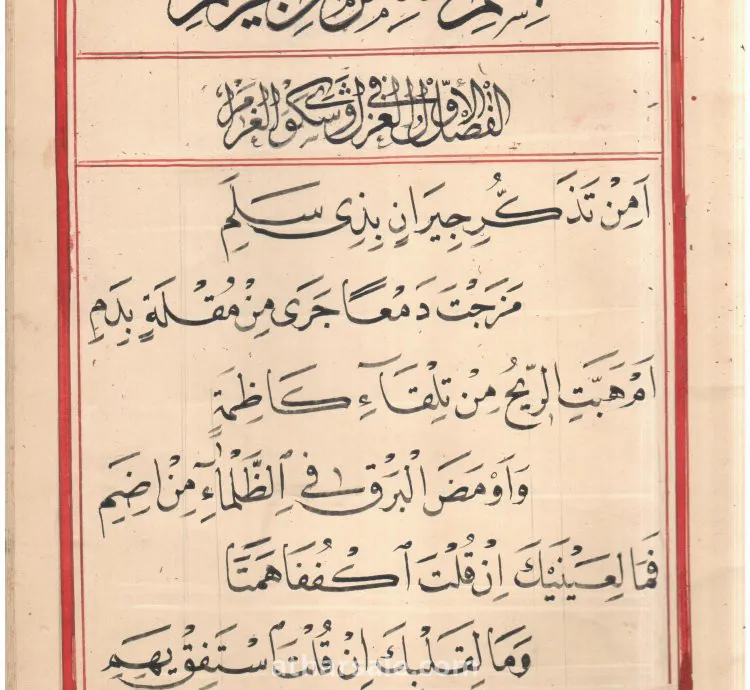 الفصل الأول في الغزل وشكوى الغرام
اَمِنْ تَذَكُّرِ جِيرَانٍ بِذِى سَلَمِ
مَزَجْتَ دَمْعًا جَرَى مِنْ مُقْلَةٍ بِدَمِ
اَمْ هَبَّتِ الرِّيحُ مِنْ تِلْقَاءِ كَاظِمَةٍ
وَاَوْمَضَ الْبَرْقُ فِي الظَّلْمَاءِ مِنْ اِضَمِ
فَمَا لِعَيْنَيْكَ اِنْ قُلْتَ اكْفُفَا هَمَتَا
وَمَا لِقَلْبِكَ اِنْ قُلْتَ اسْتَفِقْ يَهِمِ